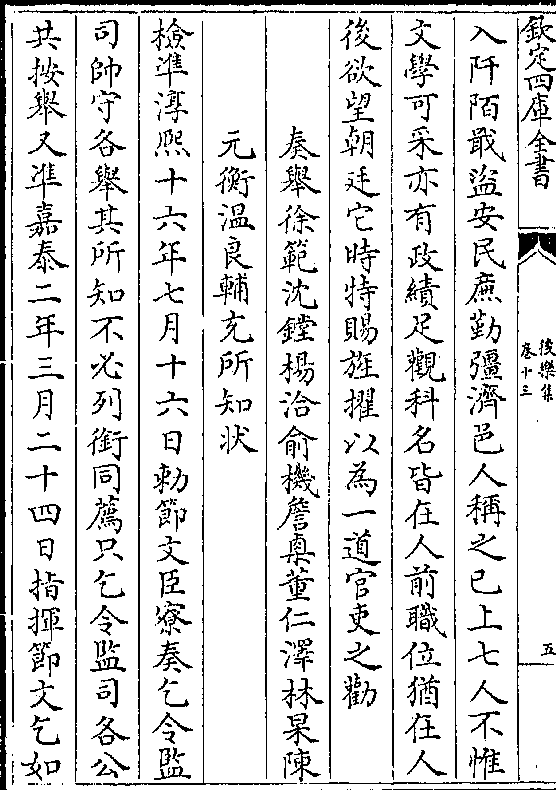 欽定四庫全書
後樂集
卷十三
五
入阡陌戢盜安民庶勤彊濟邑人稱之已上七人不惟
文學可采亦有政績足觀科名皆在人前職位猶在人
後欲望朝廷它時特賜旌擢以為一道官吏之勸
奏舉徐範沈鏜楊洽俞機詹㮚董仁澤林杲陳
元衡溫良輔充所知狀
檢準淳熙十六年七月十六日勅節文臣寮奏乞令監
司帥守各舉其所知不必列銜同薦只乞令監司各公
共按舉又準嘉泰二年三月二十四日指揮節文乞如